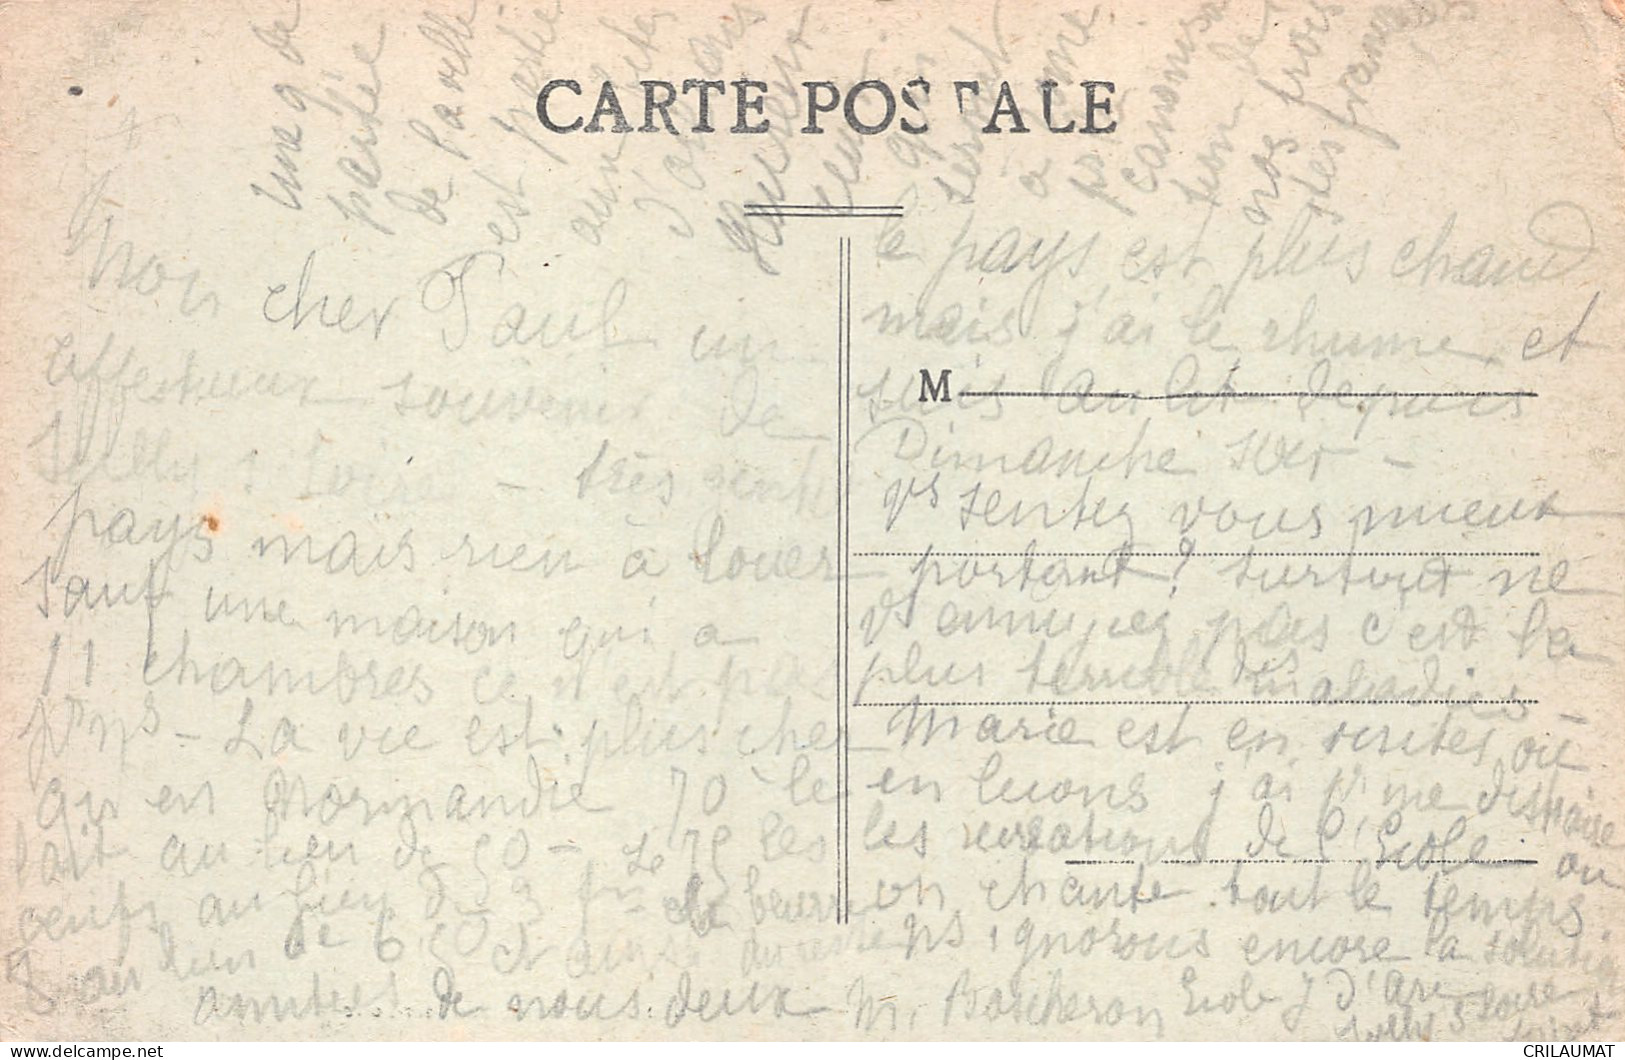 CARTE POSTALE
M
Mon cher Paul un
affectueux souvenir de
Sully s Loire - très gentil
pays mais rien à louer
sauf une maison qui a
11 chambres ce n'est pas
pr ns - La vie est plus cher
qu'en Normandie 70 le
lait au lieu de 50 - le 75 les
oeufs au lieu de 50 3 le beurre
8 au lieu de 6 50 et ainsi du reste
amitiés de nous deux
le pays est plus chaud
mais j'ai le rhume et
suis au lit depuis
Dimanche soir -
Vs sentez vous mieux
portant? surtout ne
Vs ennuyez pas c'est la
plus terrible des maladies -
Marie est en visites ou
en leçons j'ai pr me distraire
les recréations de l'Ecole ou
on chante tout le temps
Ns ignorons encore la solution
M. Boscheron Ecole J d'Arc
Sully s Loire
Loiret
une g de
partie
de la ville
est partie
aux
d'
qui
serait
a
pr
nos trois
CRILAUMAT